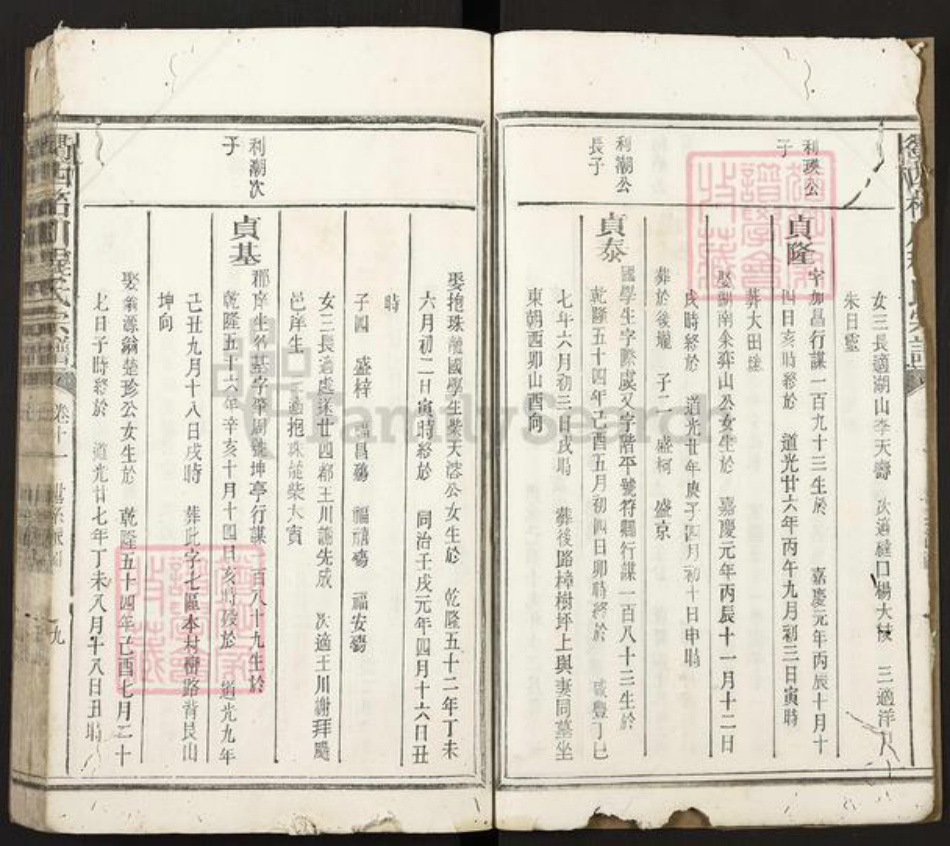 女三長適湖山李天壽 次適 口楊大 三適洋
朱日
利瑛公
子
貞隆
字加昌行謀一百九十三生於 嘉慶元年丙辰十月十
四日亥時終於 道光廿六年丙午九月初三日寅時
葬大田
娶 南余弈山公女生於 嘉慶元年丙辰十一月十二日
戌時終於 道光廿年庚子四月初十日申時
葬於後壠 子二 盛柯 盛京
利潮公
長子
貞泰
國學生字際虞又字階平號符 行謀一百八十三生於
乾隆五十四年己酉五月初四日卯時終於 咸豐丁巳
七年六月初三日戌時 葬後路樟樹坪上與妻同墓坐
東朝酉卯山酉向
娶抱珠 國學生柴天 公女生於 乾隆五十二年丁未
六月初二日寅時終於 同治壬戌元年四月十六日丑
時
子四 盛梓 福昌殤 福禧殤 福安殤
女三長適處 廿四都王川 先成 次適王川謝拜颺
邑庠生 三適抱珠 柴大寅
利潮次
子
貞基
郡庠生名基字肇周號坤亭行謀一百八十九生於
乾隆五十六年辛亥十月十四日亥時歿於 道光九年
己丑九月十八日戌時 葬 字七區本村 路背艮山
坤向
娶翁源翁楚珍公女生於 乾隆五十四年己酉七月二十
七日子時終於 道光廿七年丁未八月十八日丑時
氏宗譜
卷十一
世系
九
FamilySearch